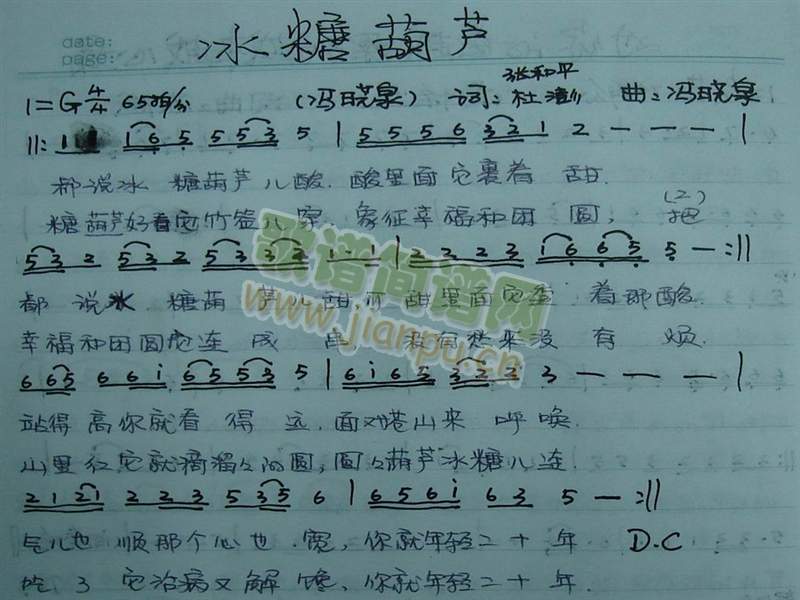 date:
page:
冰糖葫芦
1=G 4/4 65拍/分 (冯晓泉) 词:张和平 曲:冯晓泉
||: 1 1 1 6 5 5 5 3 5 | 5 5 5 6 3 2 1 2 — — — |
都说冰 糖葫芦儿酸.酸里面它裹着 甜.
糖葫芦好看它竹签儿穿 象征幸福和团 圆, (2) 把
5 3 2 5 3 2 5 3 3 2 1 · 1 | 2 2 2 3 1 6 6 5 5 — :||
都 说冰 糖葫 芦儿甜.可 甜里面它 着那酸
幸福和团圆它连 成 串 没有愁来没 有 烦.
6 6 5 6 6 i 6 5 5 3 5 | 6 i 6 5 3 2 2 3 — — — |
站得 高你就看 得 远,面对苍山来 呼唤.
山里红它就滴溜々的圆,圆々葫芦冰糖儿连.
2 1 2 1 2 2 3 5 3 5 6 | 6 5 6 i 6 3 5 — :||
气儿也 顺那个心也.宽,你就年轻二十 年 D.C
吃 了 它治病又解 馋,你就年轻二十 年.
歌谱简谱网
www.jianpu.cn